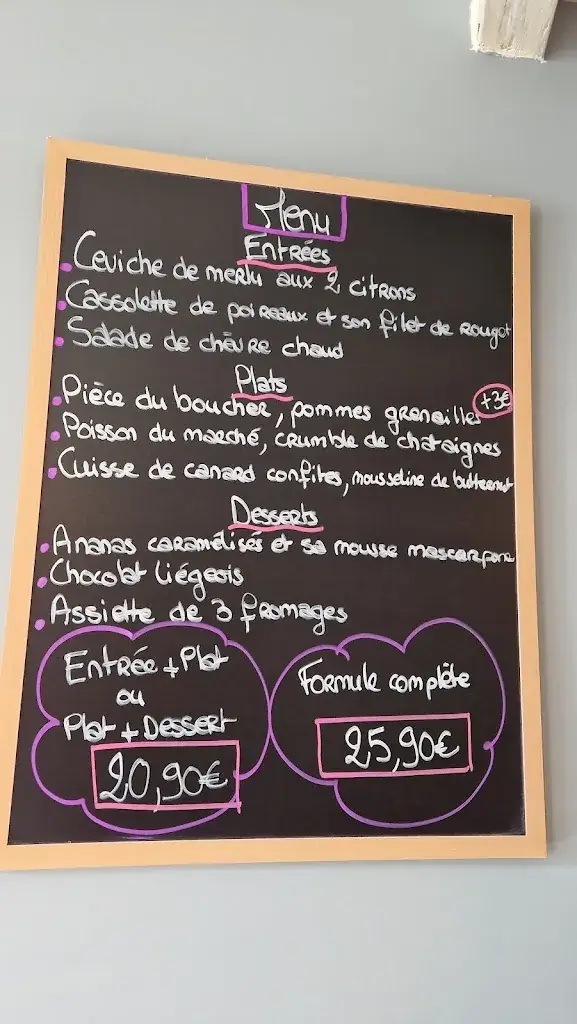 Menu
Entrées
• Ceviche de merlu aux 2 citrons
• Cassolette de poireaux et son filet de rouget
• Salade de chèvre chaud
Plats
• Pièce du boucher, pommes grenailles +3€
• Poisson du marché, crumble de chataignes
• Cuisse de canard confites, mousseline de butternut
Desserts
• Ananas caramélisés et sa mousse mascarpone
• Chocolat liégeois
• Assiette de 3 fromages
Entrée + Plat
ou
Plat + Dessert
20,90€
Formule complète
25,90€